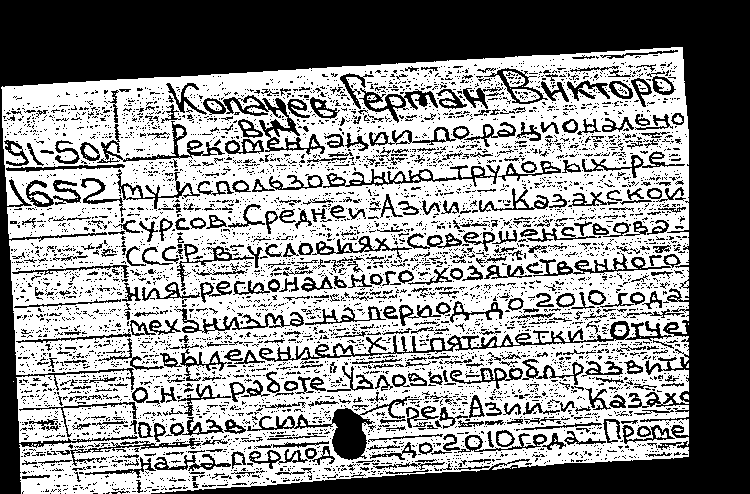 Копачев, Герман Викторо
вич.
Рекомендации по рационально
91-50К
1652
му использованию трудовых ре=
сурсов Средней Азии и Казахской
ССР в условиях совершенствова-
ния регионального хозяйственного
механизма на период до 2010 года
с выделением XIII пятилетки: Отчет
о н. и. работе "Узловые пробл развити
произв сил Сред. Азии и Казахс
на на период до 2010 года. Проме